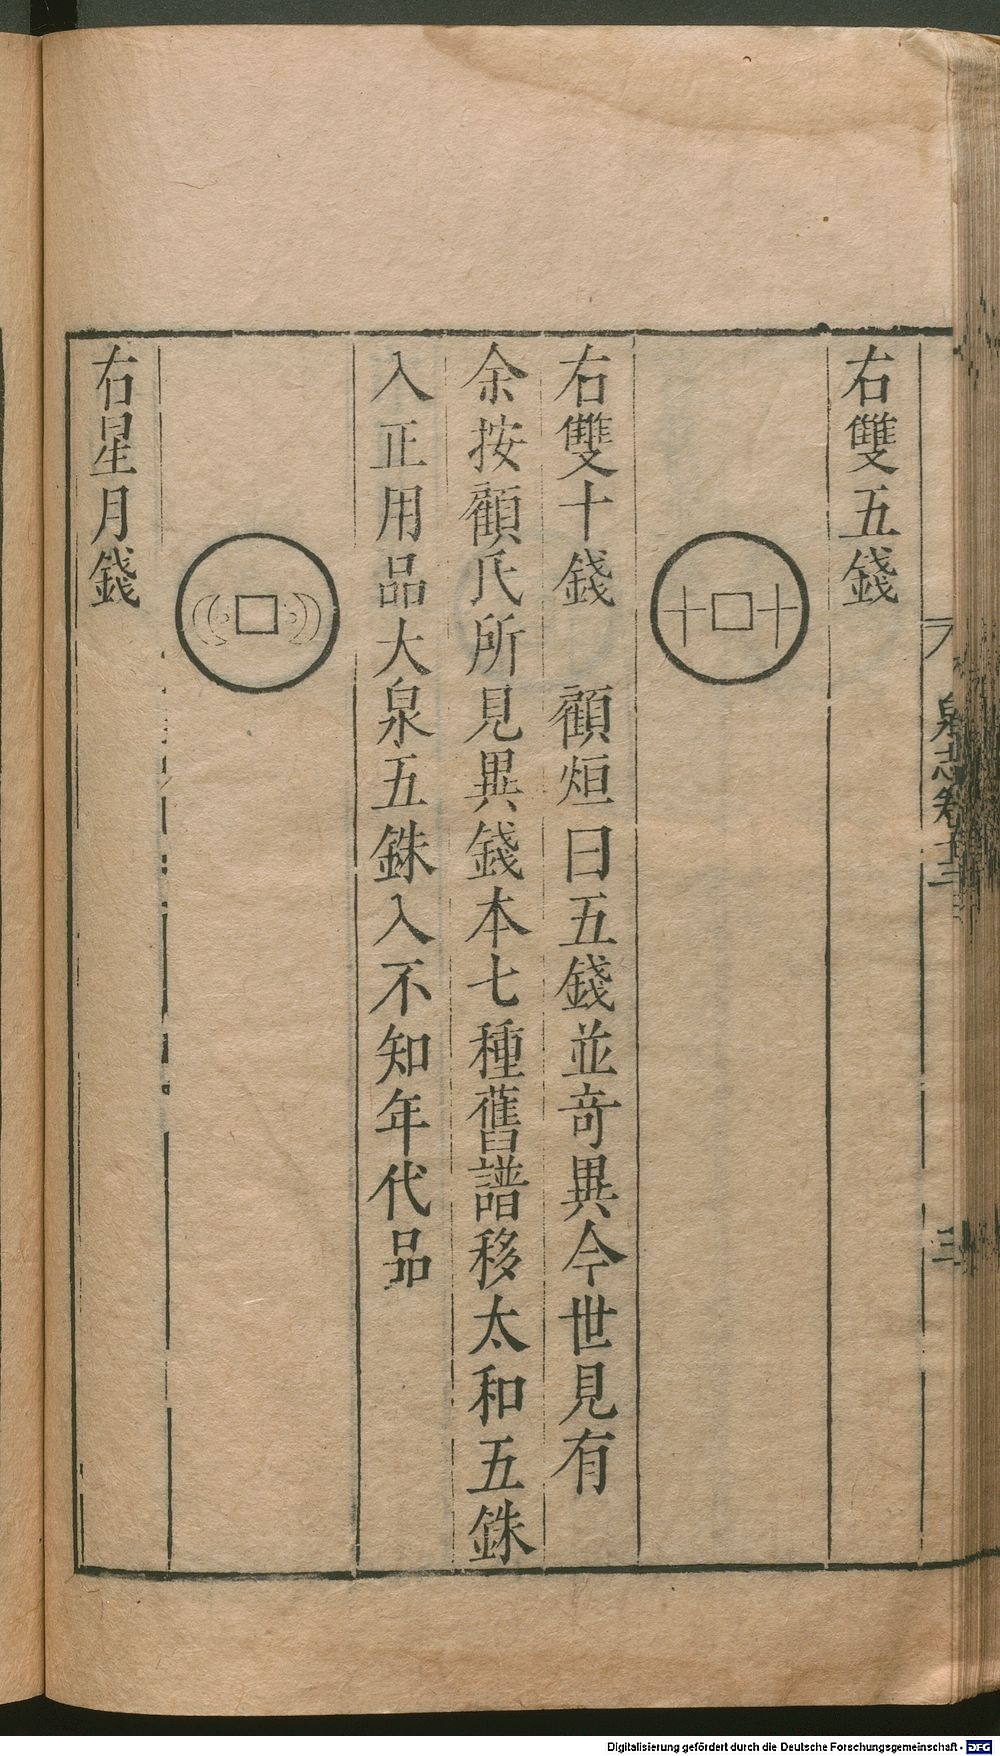 泉志卷十三
三
右雙五錢
十 十
右雙十錢 顧烜曰五錢並竒異今世見有
余按顧氏所見異錢本七種舊譜移太和五銖
入正用品大泉五銖入不知年代品
右星月錢
Digitalisierung gefördert durch die Deutsche Forschungsgemeinschaft - DFG